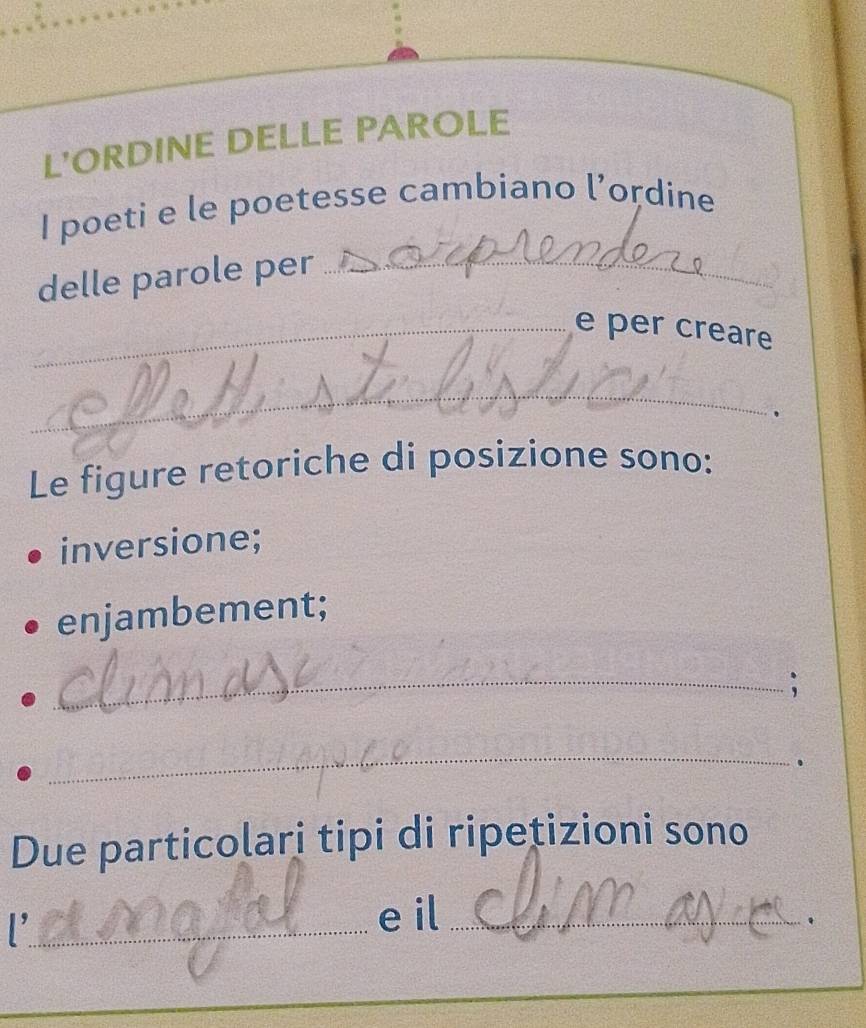 L'ORDINE DELLE PAROLE
I poeti e le poetesse cambiano l'ordine
delle parole per sorprendere
e per creare
effetti stilistici.
Le figure retoriche di posizione sono:
• inversione;
• enjambement;
• climasc;
• .
Due particolari tipi di ripetizioni sono
l' e il climax.